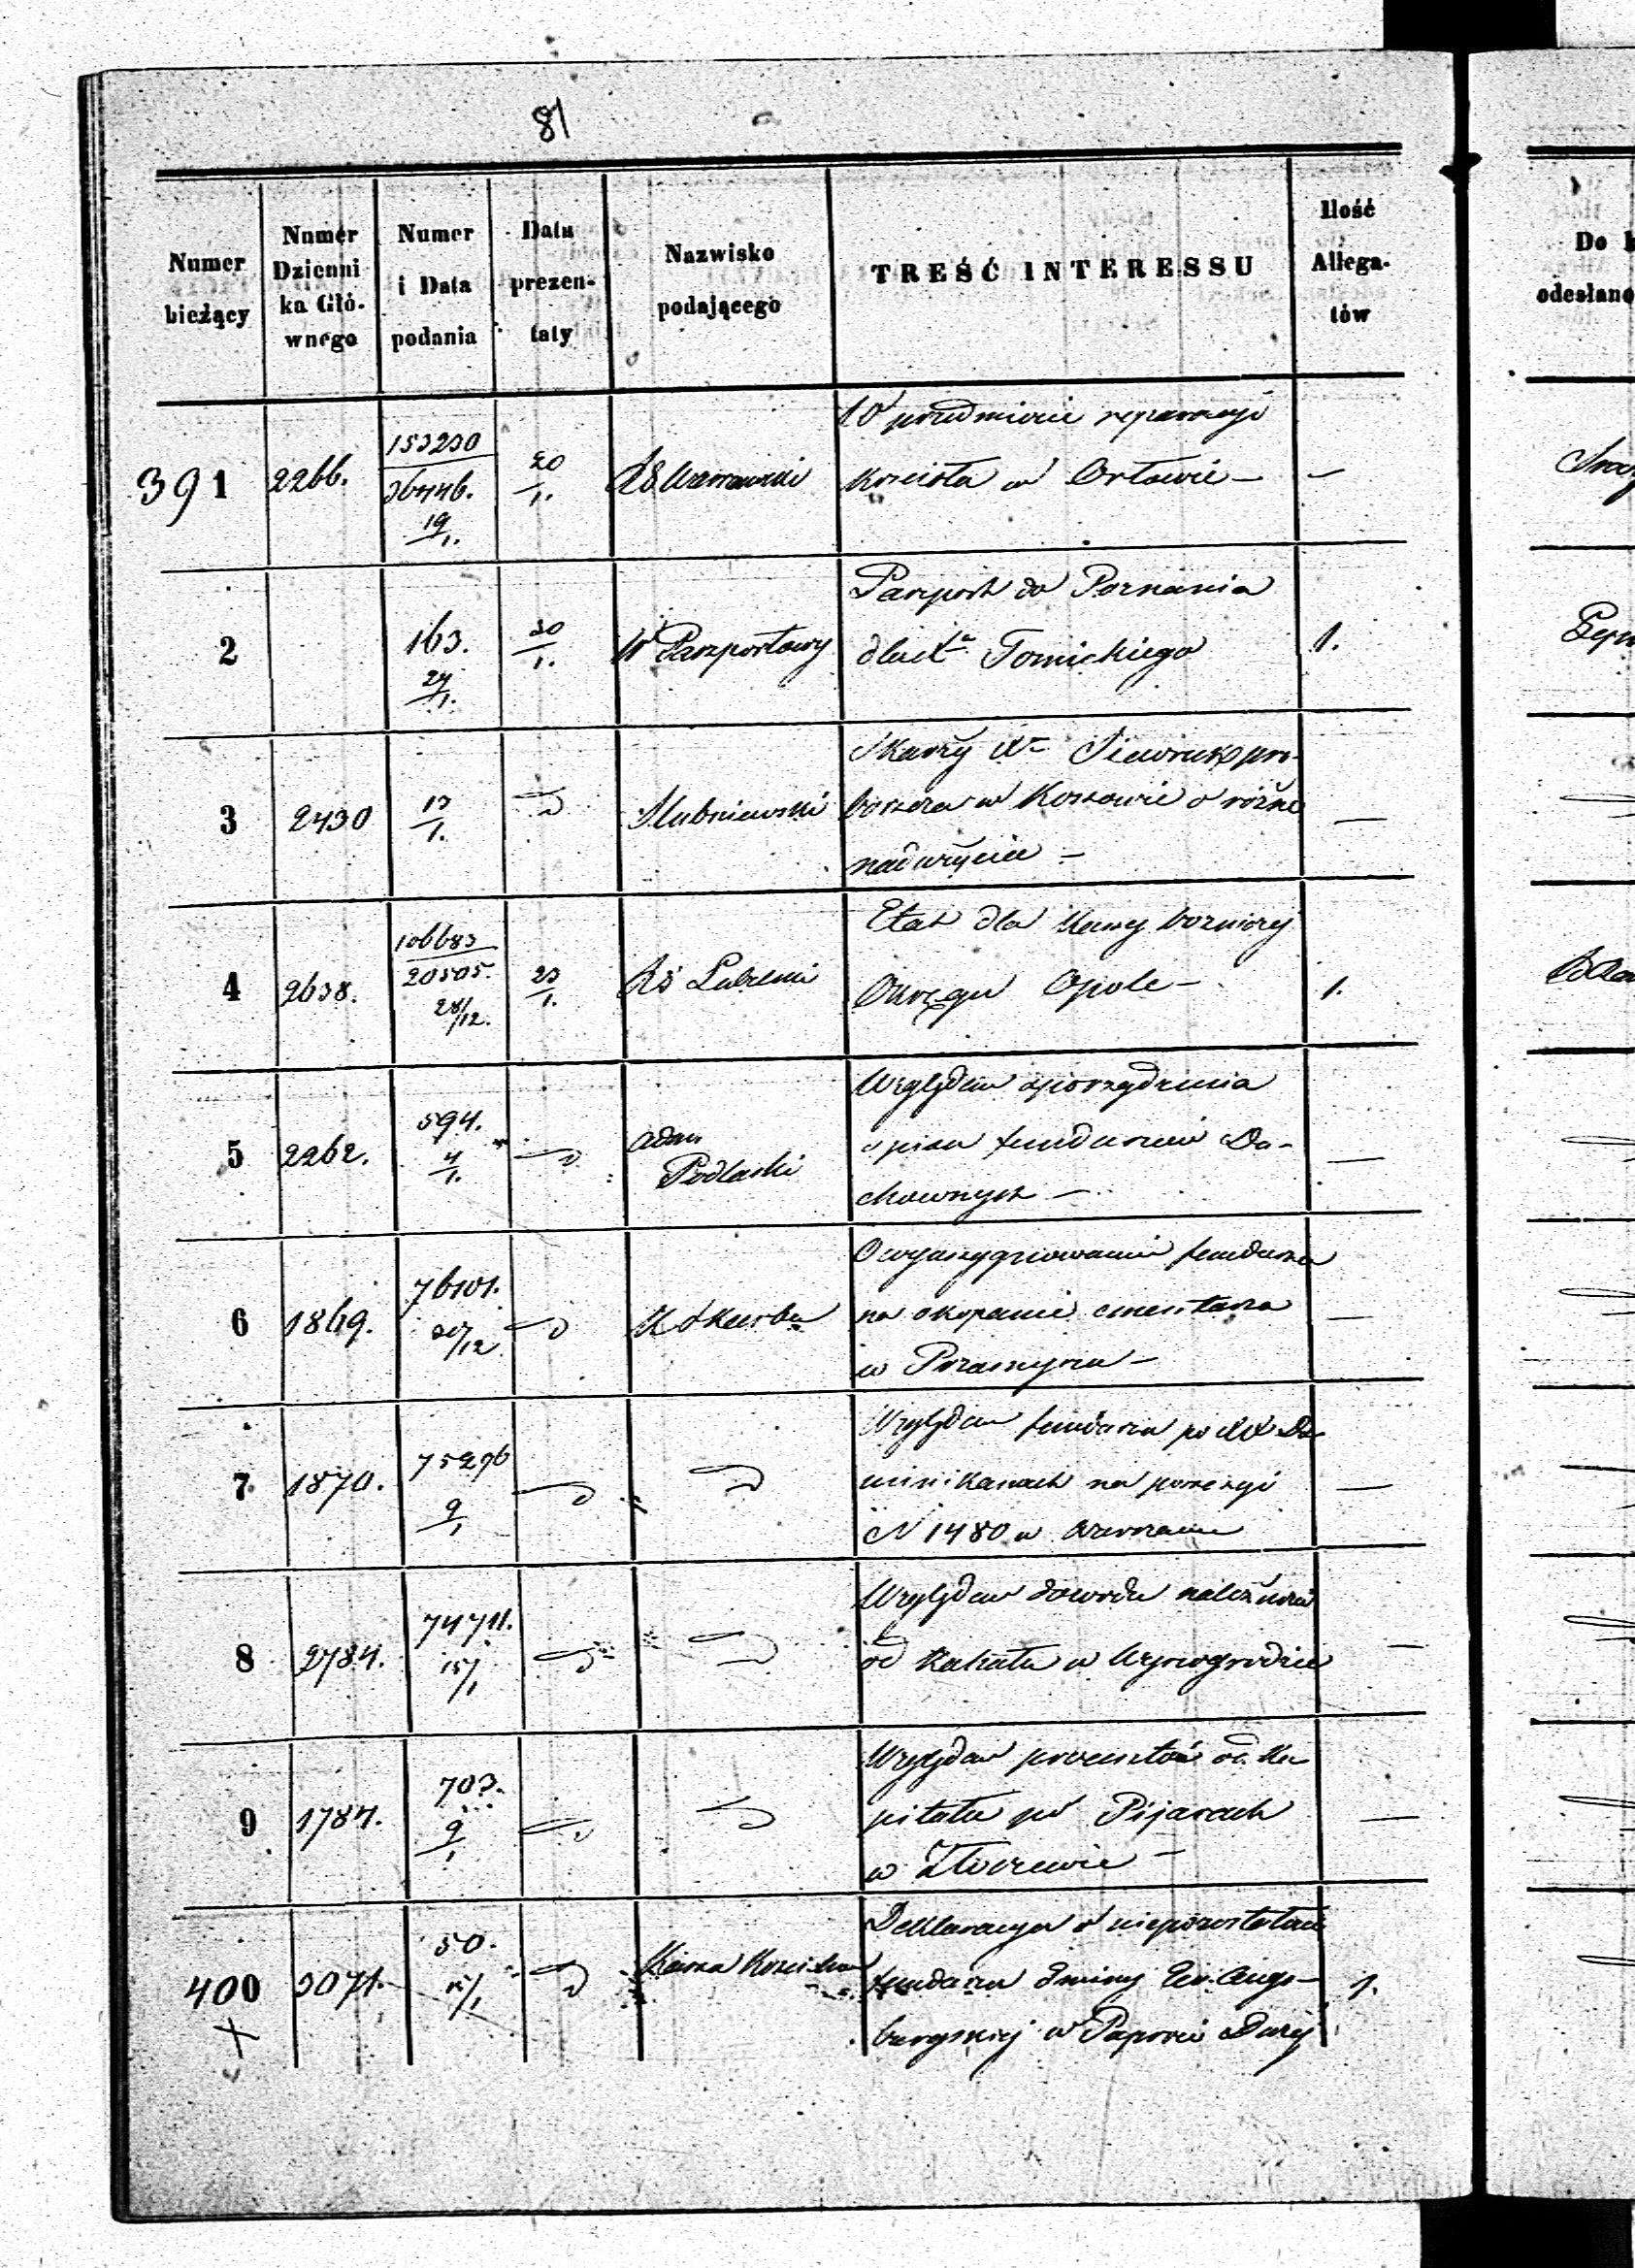 81
Numer bieżący
Numer Dzienni ka Głó- wnego
Numer i Data podania
Data prezen- taty
Nazwisko podającego
TREŚĆ INTERESSU
Ilość Allega- tów
Do
odesłano
391 2266. 153230 36446. 19/1. 20/1. W przedmiocie reparacyi
Kościoła w Orłowie — –
2 163. 24/1. 30/1. W Paszportowy Paszport do Poznania
dla Xa Tomickiego 1.
3 2430 13/1. Słubniewski Skarży Xa pro-
boszcza w Kossowie o różne
nadużycia — —
4 2638. 106683 20505. 28/12. 23/1. RG Lubelski Etat dla Kassy bożniczej
Okręgu Opole — 1.
5 2262. 594. 4/1. Adm. Podlaski Względem sporządzenia
opisu funduszów Du-
chownych — —
6 1869. 76101. /12 K Skarbu O wyassygnowanie funduszu
na okopanie cmentarza
w Przasnyszu — —
7 1870. 75296 9/1 Względem funduszu po XX Do-
minikanach na possesyi
N 1480 w Warszawie —
8 2784. 74711. 15/1 Względem dowodu należności
od Kahału w Wyszogrodzie —
9 1784. 703. 9/1 Względem procentów od Ka
pitału po Pijarach
w Złoczewie — —
400 3071. 50. 15/1 Deklaracya o niepozostałości
funduszu Gminy Ew. Augs-
burgskiej w Paproci Dużej 1.